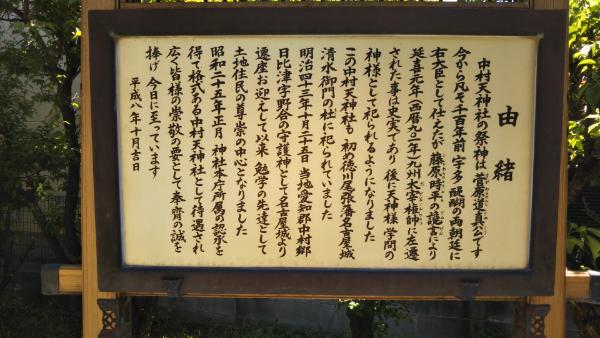 由緒
中村天神社の祭神は、菅原道真公です
今から凡そ千百年前 宇多 醍醐の両朝廷に
右大臣として仕えたが 藤原時平の讒言により
延喜元年(西暦九〇一年)九州太宰権帥に左遷
された事は史実であり 後に天神様 学問の
神様として祀られるようになりました
この中村天神社も 初め徳川尾張藩名古屋城
清水御門の杜に祀られていました
明治四十三年十月二十五日 当地愛知郡中村郷
日比津字野合の守護神として名古屋城より
遷座お迎えして以来 勉学の先達として
土地住民の尊崇の中心となりました
昭和二十五年正月 神社本庁所属の認承を
得て格式ある中村天神社として待遇され
広く皆様の崇敬の要として 奉齊の誠を
捧げ 今日に至っています
平成八年十月吉日